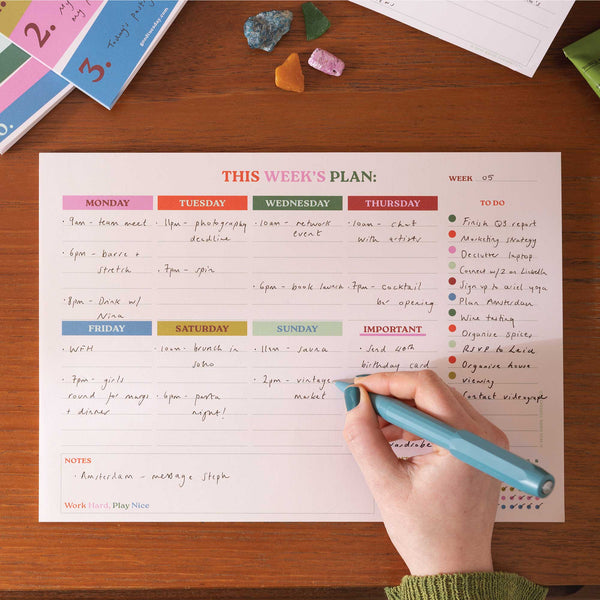 2.
3.
Today's
THIS WEEK'S PLAN:
WEEK 05
MONDAY
· 9am - team meet
· 6pm - barre +
stretch
· 8pm - Drink w/
Nina
TUESDAY
· 11pm - photography
deadline
· 7pm - spin
WEDNESDAY
· 10am - network
event
· 6pm - book launch
THURSDAY
· 10am - chat
with artists
· 7pm - cocktail
bar opening
TO DO
Finish Q3 report
Marketing strategy
Declutter laptop
Connect w/2 on LinkedIn
Sign up to ariel yoga
Plan Amsterdam
Wine tasting
Organise spices
RSVP to Leid
Organise house
viewing
Contact videographer
FRIDAY
· WFH
· 7pm - girls
round for margs
+ dinner
SATURDAY
· 10am - brunch in
soho
· 6pm - pasta
night!
SUNDAY
· 11am - sauna
· 2pm - vintage
market
IMPORTANT
· Send 40th
birthday card
wardrobe
NOTES
· Amsterdam - message Steph
Work Hard, Play Nice